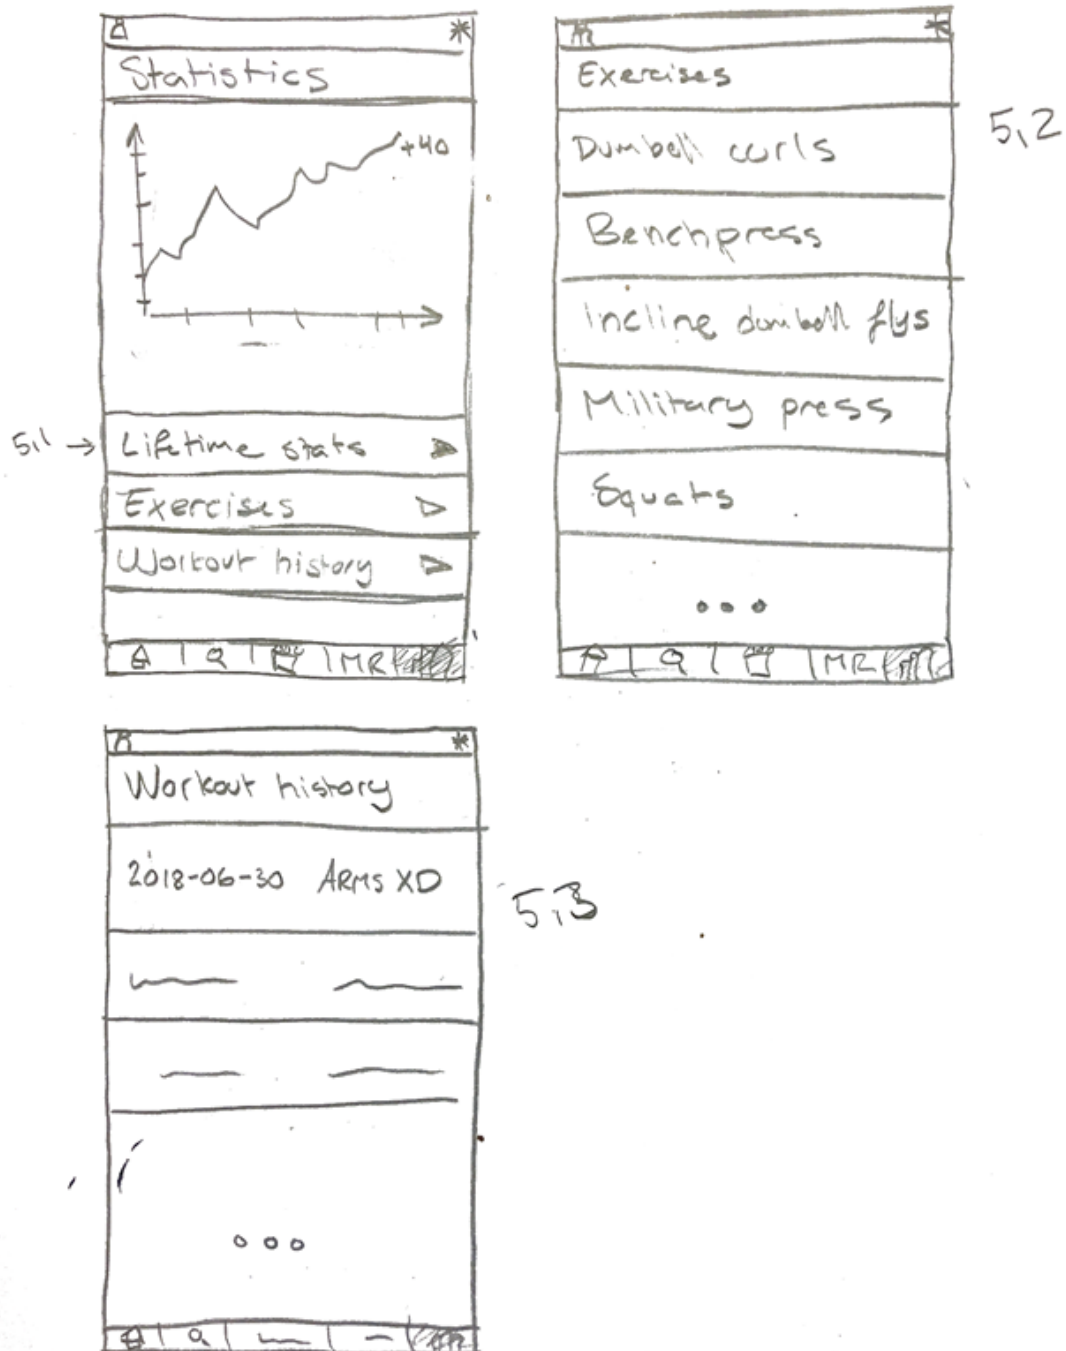 Statistics
+40
5,1 → Lifetime stats
Exercises
Workout history
MR
Exercises
5,2
Dumbell curls
Benchpress
Incline dumbell flys
Military press
Squats
MR
Workout history
2018-06-30 ARMS XD
5,3